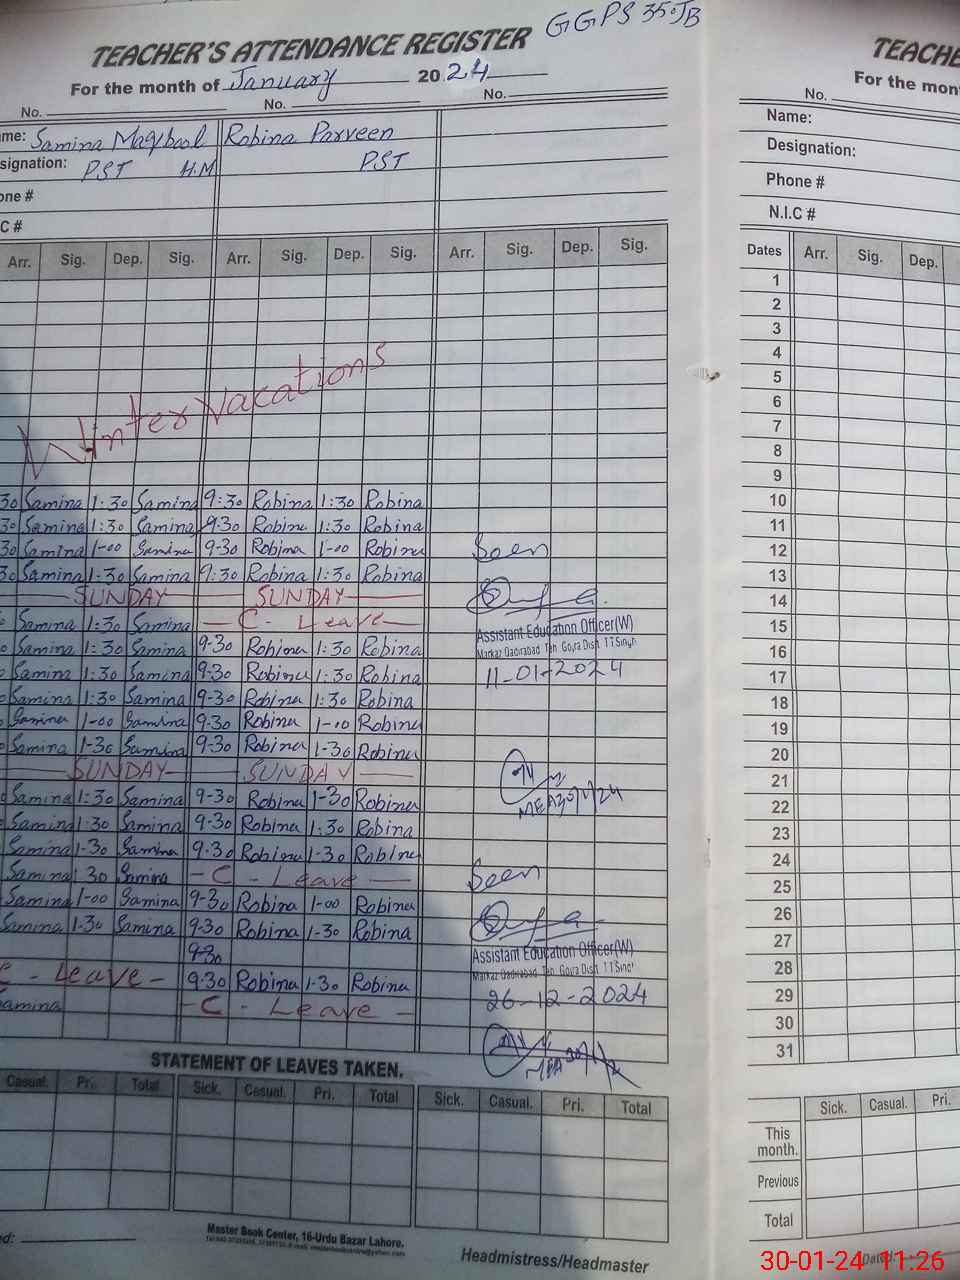 GGPS 35.JB
TEACHER'S ATTENDANCE REGISTER
For the month of January 2024
No. No. No.
ame: Samina Maqbool Robina Parveen
signation: PST H.M PST
one #
C #
Arr. Sig. Dep. Sig. Arr. Sig. Dep. Sig. Arr. Sig. Dep. Sig.
Winter Vacations
30 Samina 1:30 Samina 9:30 Robina 1:30 Robina
30 Samina 1:30 Samina 9-30 Robina 1:30 Robina
30 Samina 1-00 Samina 9-30 Robina 1-00 Robina Seen
30 Samina 1:30 Samina 9:30 Robina 1:30 Robina
SUNDAY SUNDAY
Samina 1:30 Samina - C - Leave -
Assistant Education Officer(W)
Samina 1:30 Samina 9-30 Robina 1:30 Robina
Markaz Qadirabad Teh Gojra Distt T.T Singh
Samina 1:30 Samina 9-30 Robina 1:30 Robina 11-01-2024
Samina 1:30 Samina 9-30 Robina 1:30 Robina
Samina 1-00 Samina 9-30 Robina 1-00 Robina
Samina 1-30 Samina 9-30 Robina 1-30 Robina
SUNDAY SUNDAY
Samina 1:30 Samina 9-30 Robina 1-30 Robina MEA
Samina 1:30 Samina 9-30 Robina 1:30 Robina
Samina 1-30 Samina 9-30 Robina 1-30 Robina
Samina 1 30 Samina - C - Leave - Seen
Samina 1-00 Samina 9-30 Robina 1-00 Robina
Samina 1-30 Samina 9-30 Robina 1-30 Robina
9-30 Assistant Education Officer(W)
Markaz Qadirabad Teh Gojra Distt T.T Singh
- Leave - 9-30 Robina 1-30 Robina 26-12-2024
amina - C - Leave -
STATEMENT OF LEAVES TAKEN.
Casual. Pri. Total Sick. Casual. Pri. Total Sick. Casual. Pri. Total
ed:
Master Book Center, 16-Urdu Bazar Lahore.
Headmistress/Headmaster
TEACHE
For the mon
No.
Name:
Designation:
Phone #
N.I.C #
Dates Arr. Sig. Dep.
1
2
3
4
5
6
7
8
9
10
11
12
13
14
15
16
17
18
19
20
21
22
23
24
25
26
27
28
29
30
31
Sick. Casual. Pri.
This
month.
Previous
Total
Dated:
30-01-24 11:26